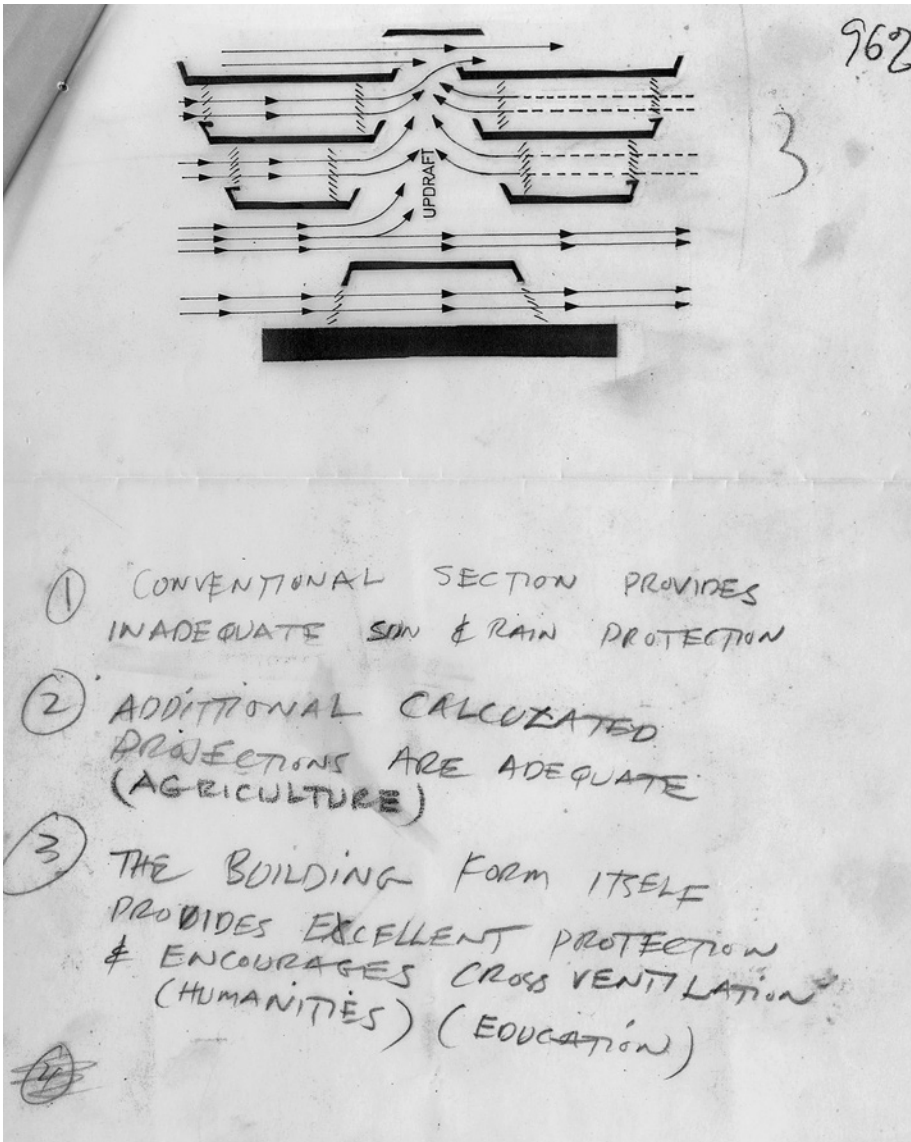 962
3
UPDRAFT
① CONVENTIONAL SECTION PROVIDES
INADEQUATE SUN & RAIN PROTECTION
② ADDITIONAL CALCULATED
PROJECTIONS ARE ADEQUATE
(AGRICULTURE)
③ THE BUILDING FORM ITSELF
PROVIDES EXCELLENT PROTECTION
& ENCOURAGES CROSS VENTILATION
(HUMANITIES) (EDUCATION)
④